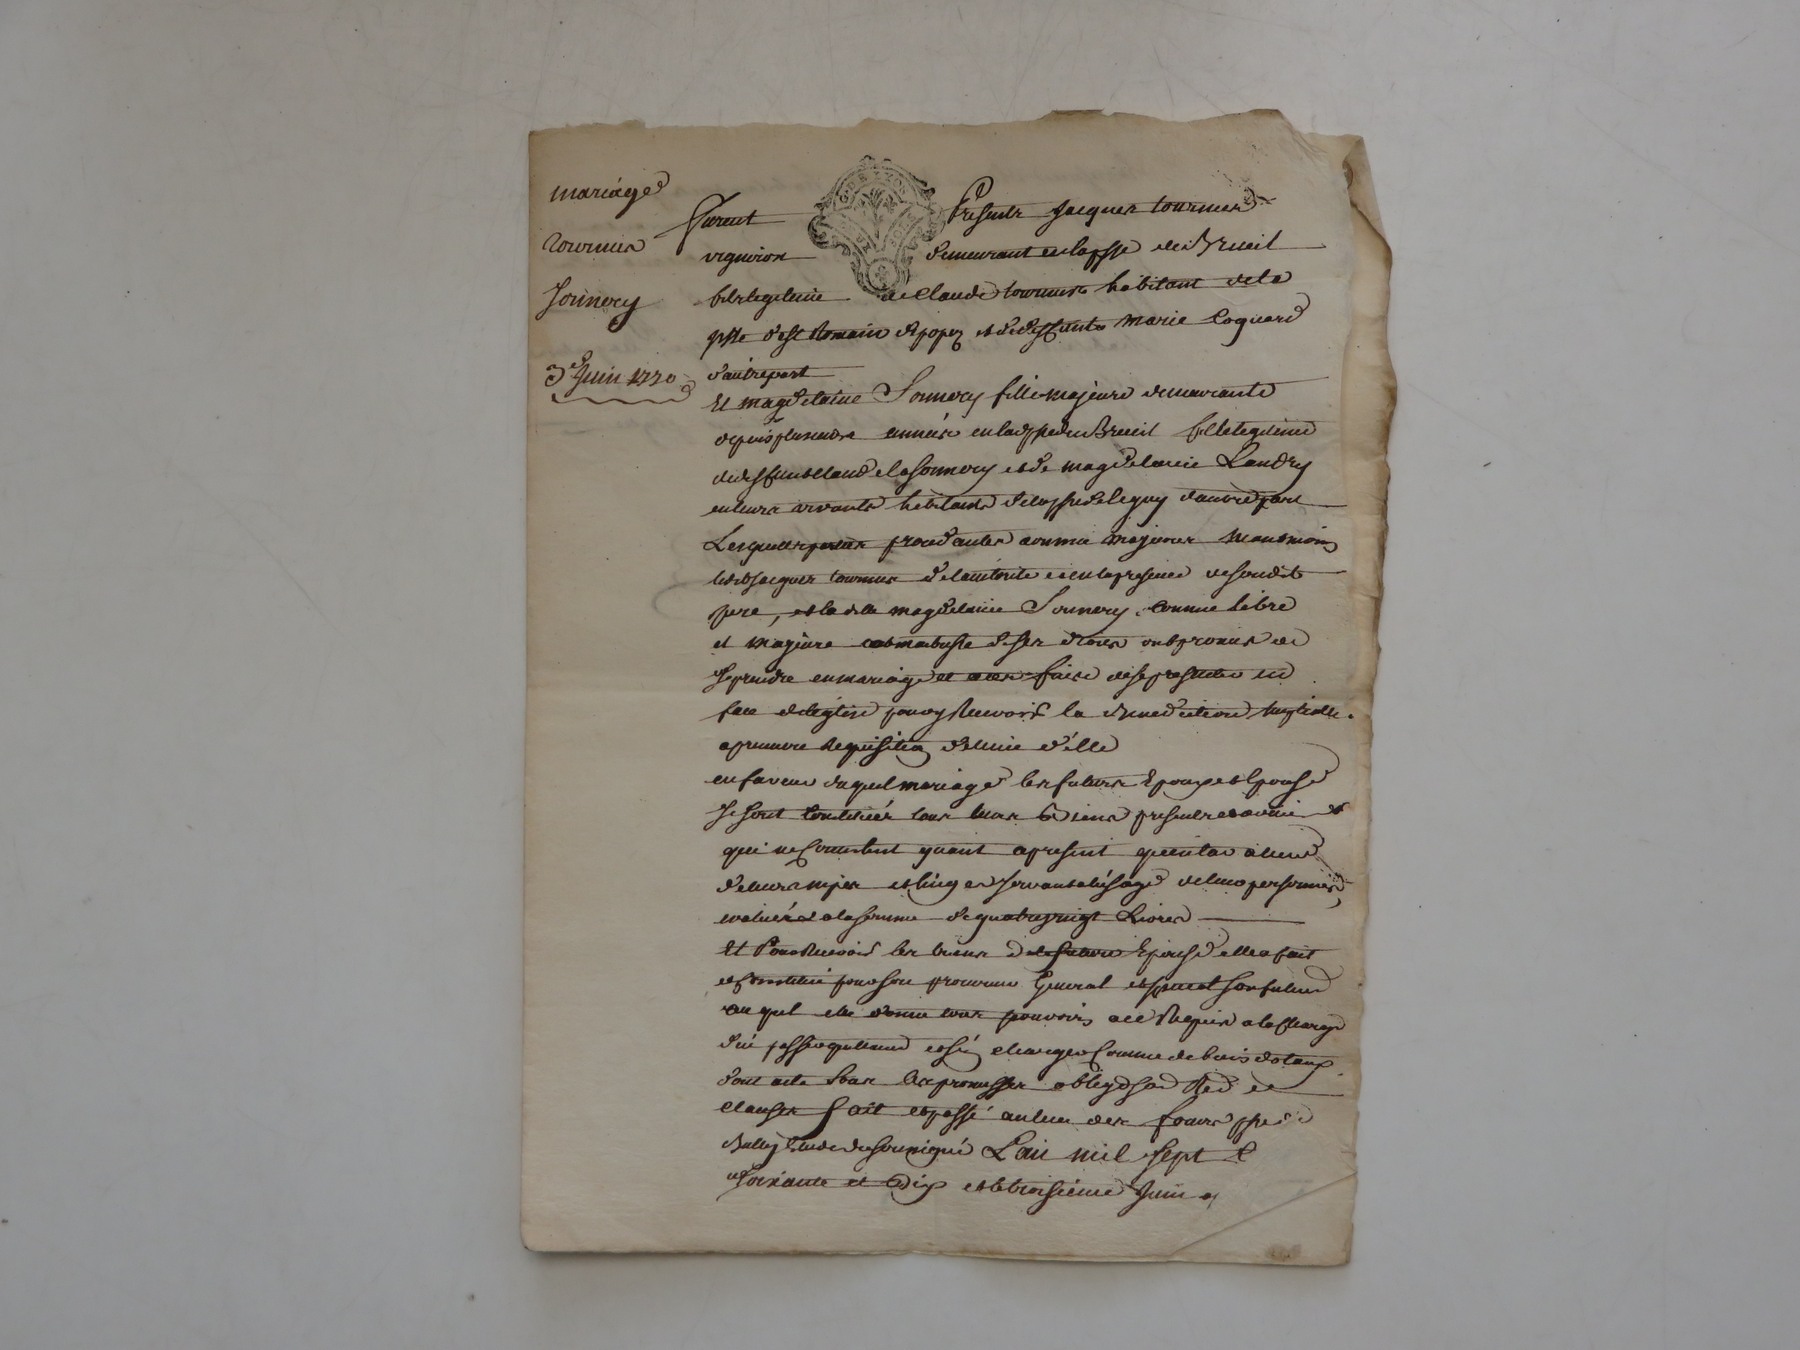 mariage
tournier
Sonnery
3e Juin 1770
furent Presents Jacques tournier
vigneron demeurant en la psse de Breuil
fils legitime de Claude tournier habitant de la
psse de st Romain de popez et de deffunte Marie Coquard
d'autre part
Et magdelaine Sonnery fille majeure demeurante
depuis plusieurs années en la psse du Breuil fille legitime
de deffunt Claude Sonnery et de magdelaine Landry
en leurs vivants habitants de la psse de legny d'autre part
Lesquelles parties procedantes comme majeures Neanmoins
ledt Jacques tournier de l'autorité et en la presence de son dt
pere, et la dite magdelaine Sonnery comme libre
et majeure et maitresse de ses droits ont promis de
se prendre en mariage et a ces faire de se presenter en
face de l'église pour y Recevoir la Benediction Nuptialle
a premiere Requisition de l'une d'elle
en faveur du quel mariage les futurs Epoux et Epouse
se sont Constitués tous leurs Biens presents et avenir
qui ne Consistent quant a present qu'en la valleur
de leurs nipes et linges servants a l'usage de leurs personnes
evalués a la somme de quatrevingt Livres
Et Pour Recevoir les biens de la future Epouse elle a fait
et Constitué pour son procureur General et special son futur
au quel elle donne tous pouvoirs a ce Requis a la Charge
d'en passer quittance et s'en charger Comme de biens dotaux
dont acte sous les promesses obligations Red et
clauses fait et passé au lieu des fours psse de
Bully Etude du soussigné L'an mil sept C
soixante et Dix et le troisieme Juin